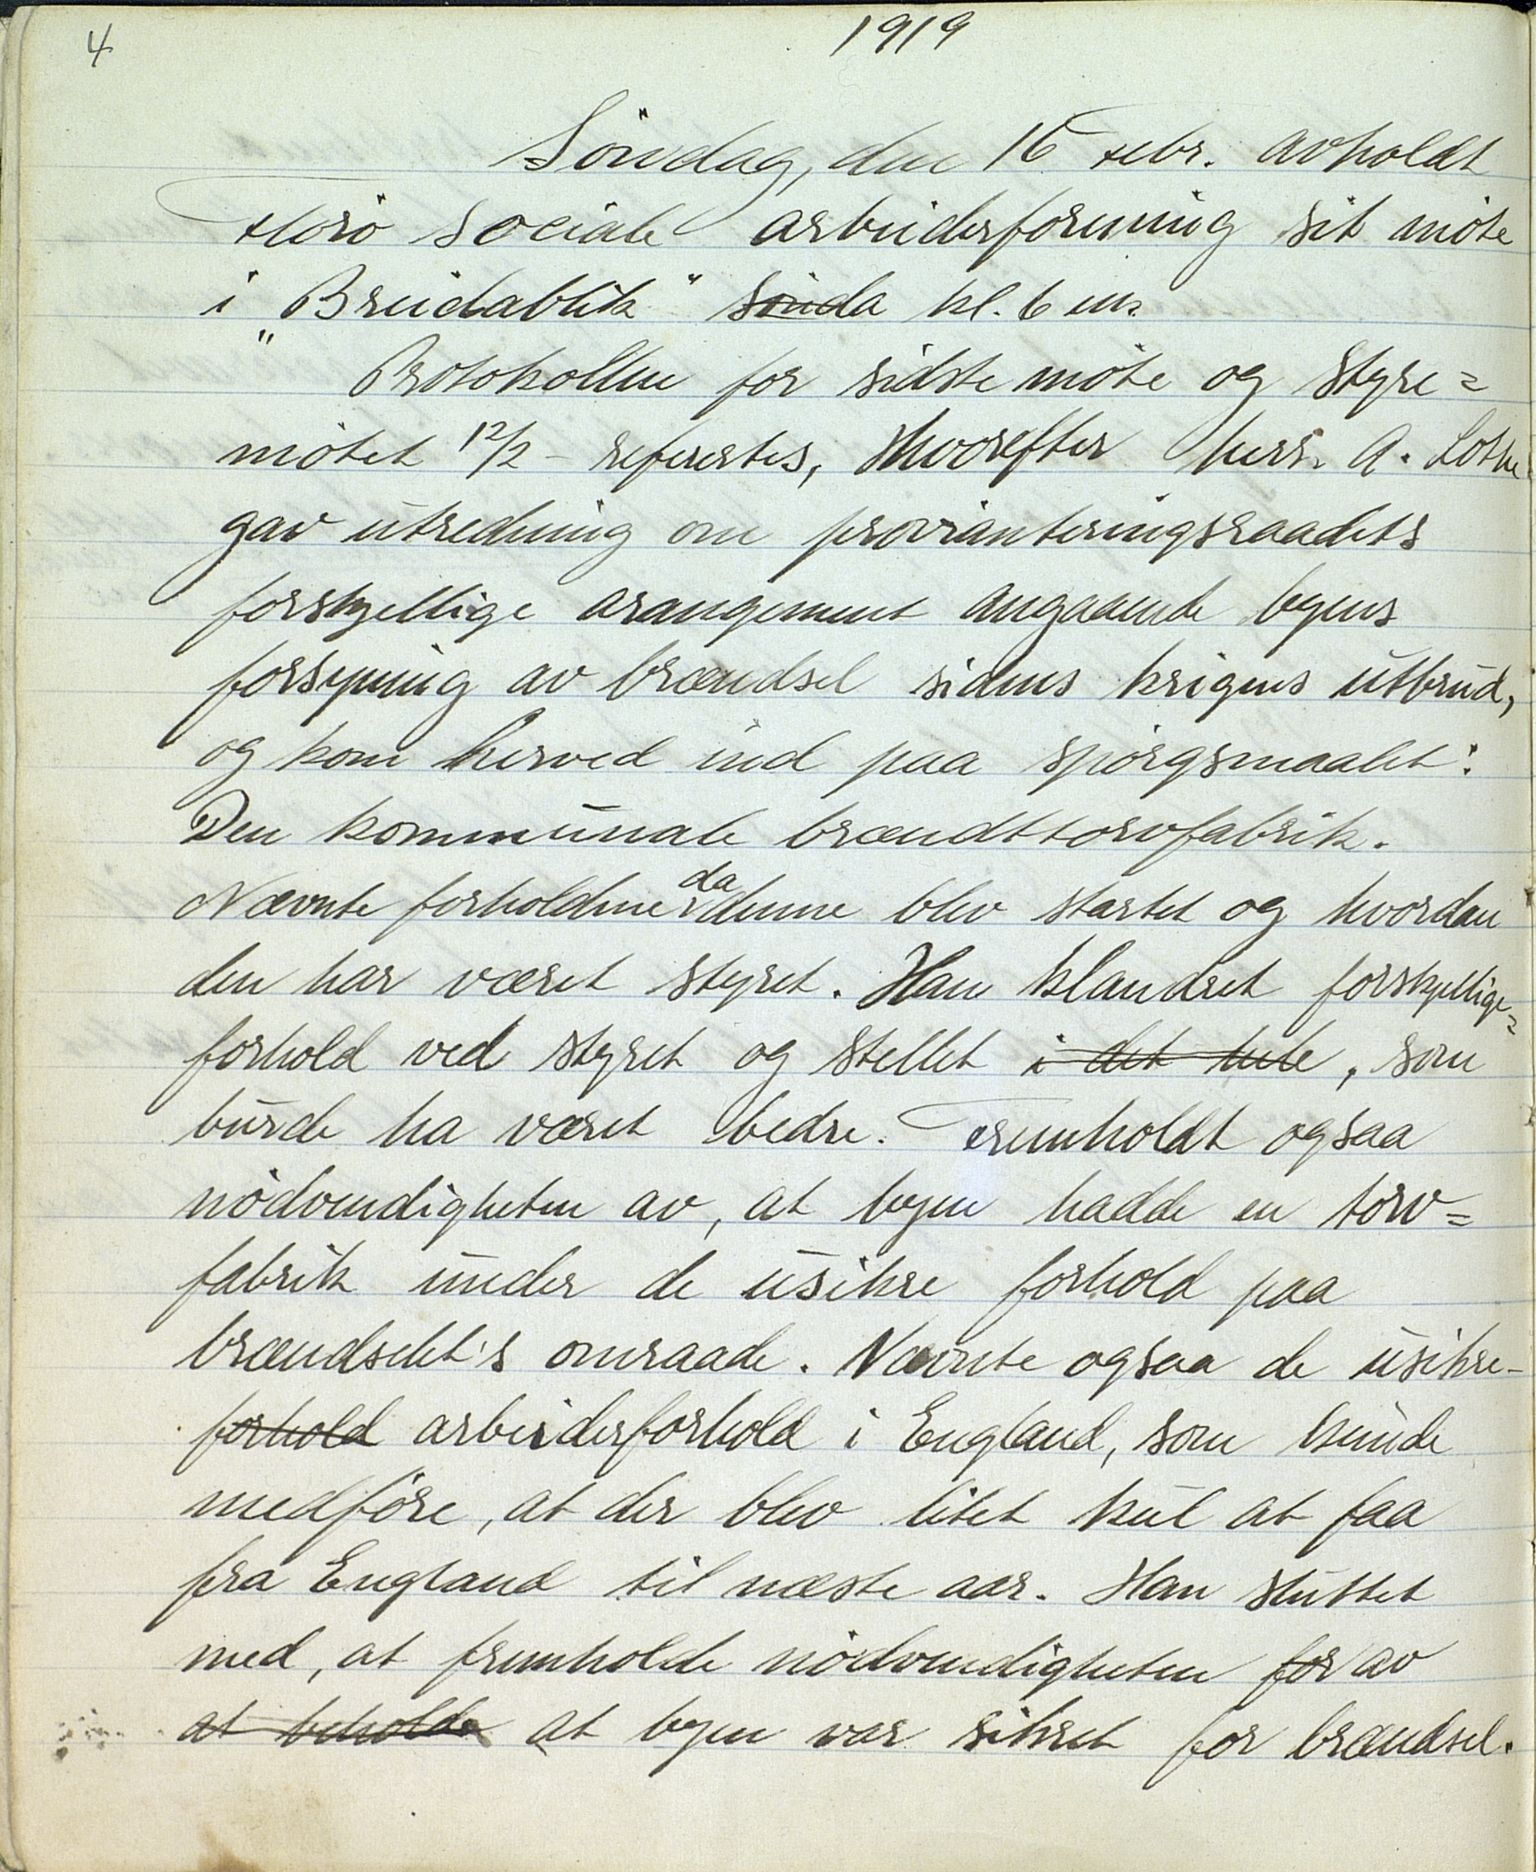 4
1919
Söndag, den 16 Febr. avholdt
Florö Sociale arbeiderforening sit möte
i „Breidablik" Sönda kl. 6 em.
Protokollen for sidste möte og styre=
mötet 12/2 - refertes, Hvorefter herr. A. Lothe
gav utredning om provianteringsraadets
forskjellige arangement angaaende byens
forsyning av brændsel sidens krigens utbrud,
og kom herved ind paa spörgsmaalet:
Den kommunale brændttorvfabrik.
Nævnte forholdene da denne blev startet og hvordan
den har været styret. Han klandret forskjellige=
forhold ved styret og stellet i det hele, som
burde ha været bedre. Fremholdt ogsaa
nödvendigheten av, at byen hadde en torv=
fabrik under de usikre forhold paa
brændselet's omraade. Nævnte ogsaa de usikre-
forhold arbeiderforhold i England, som kunde
medföre, at der blev litet kul at faa
fra England til næste aar. Han sluttet
med, at fremholde nödvendigheten for av
at beholde at byen var sikret for brændsel.